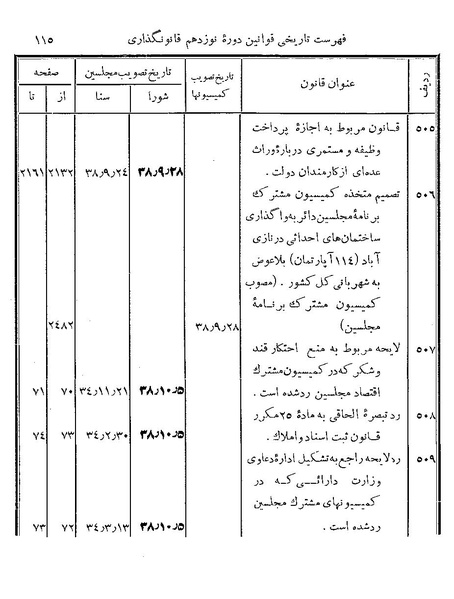 فهرست تاریخی قوانین دورهٔ نوزدهم قانونگذاری ۱۱۵
ردیف عنوان قانون تاریخ تصویب کمیسیونها تاریخ تصویب مجلسین صفحه
شورا سنا از تا
۵۰۵ قانون مربوط به اجازهٔ پرداخت
وظیفه و مستمری دربارهٔ وراث
عده‌ای از کارمندان دولت . ۳۸٫۹٫۲۸ ۳۸٫۹٫۲۴ ۲۱۳۲ ۲۱۶۱
۵۰۶ تصمیم متخذه کمیسیون مشترک
برنامهٔ مجلسین دائر به واگذاری
ساختمان‌های احداثی در نازی
آباد (۱۱۴ آپارتمان) بلاعوض
به شهربانی کل کشور . (مصوب
کمیسیون مشترک برنامهٔ
مجلسین) ۳۸٫۹٫۲۸ ۲۴۸۲
۵۰۷ لایحه مربوط به منع احتکار قند
و شکر که در کمیسیون مشترک
اقتصاد مجلسین رد شده است . ۳۸٫۱۰٫۵ ۳۴٫۱۱٫۲۱ ۷۰ ۷۱
۵۰۸ رد تبصرهٔ الحاقی به مادهٔ ۲۵ مکرر
قانون ثبت اسناد و املاک . ۳۸٫۱۰٫۵ ۳۴٫۲٫۳۰ ۷۳ ۷۴
۵۰۹ رد لایحه راجع به تشکیل ادارهٔ دعاوی
وزارت دارائی که در
کمیسیونهای مشترک مجلسین
رد شده است . ۳۸٫۱۰٫۵ ۳۴٫۳٫۱۳ ۷۲ ۷۳